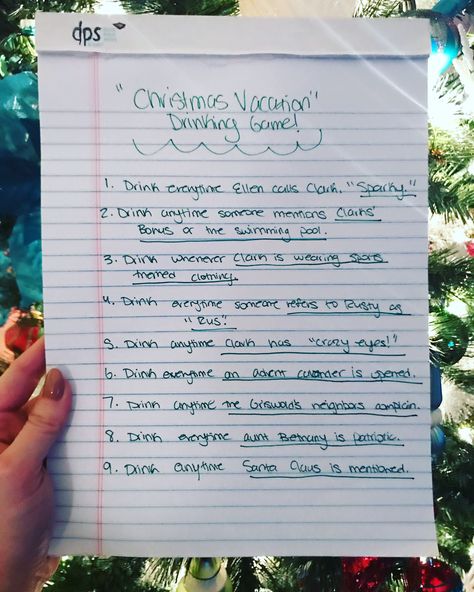 dps
"Christmas Vacation"
Drinking Game!
1. Drink everytime Ellen calls Clark, "Sparky."
2. Drink anytime someone mentions Clarks'
Bonus or the swimming pool.
3. Drink whenever Clark is wearing sports
themed clothing.
4. Drink everytime someone refers to Rusty as
"Rus".
5. Drink anytime Clark has "crazy eyes!"
6. Drink everytime an advent calander is opened.
7. Drink anytime the Griswold's neighbors complain.
8. Drink everytime aunt Bethany is patriotic.
9. Drink anytime Santa Claus is mentioned.